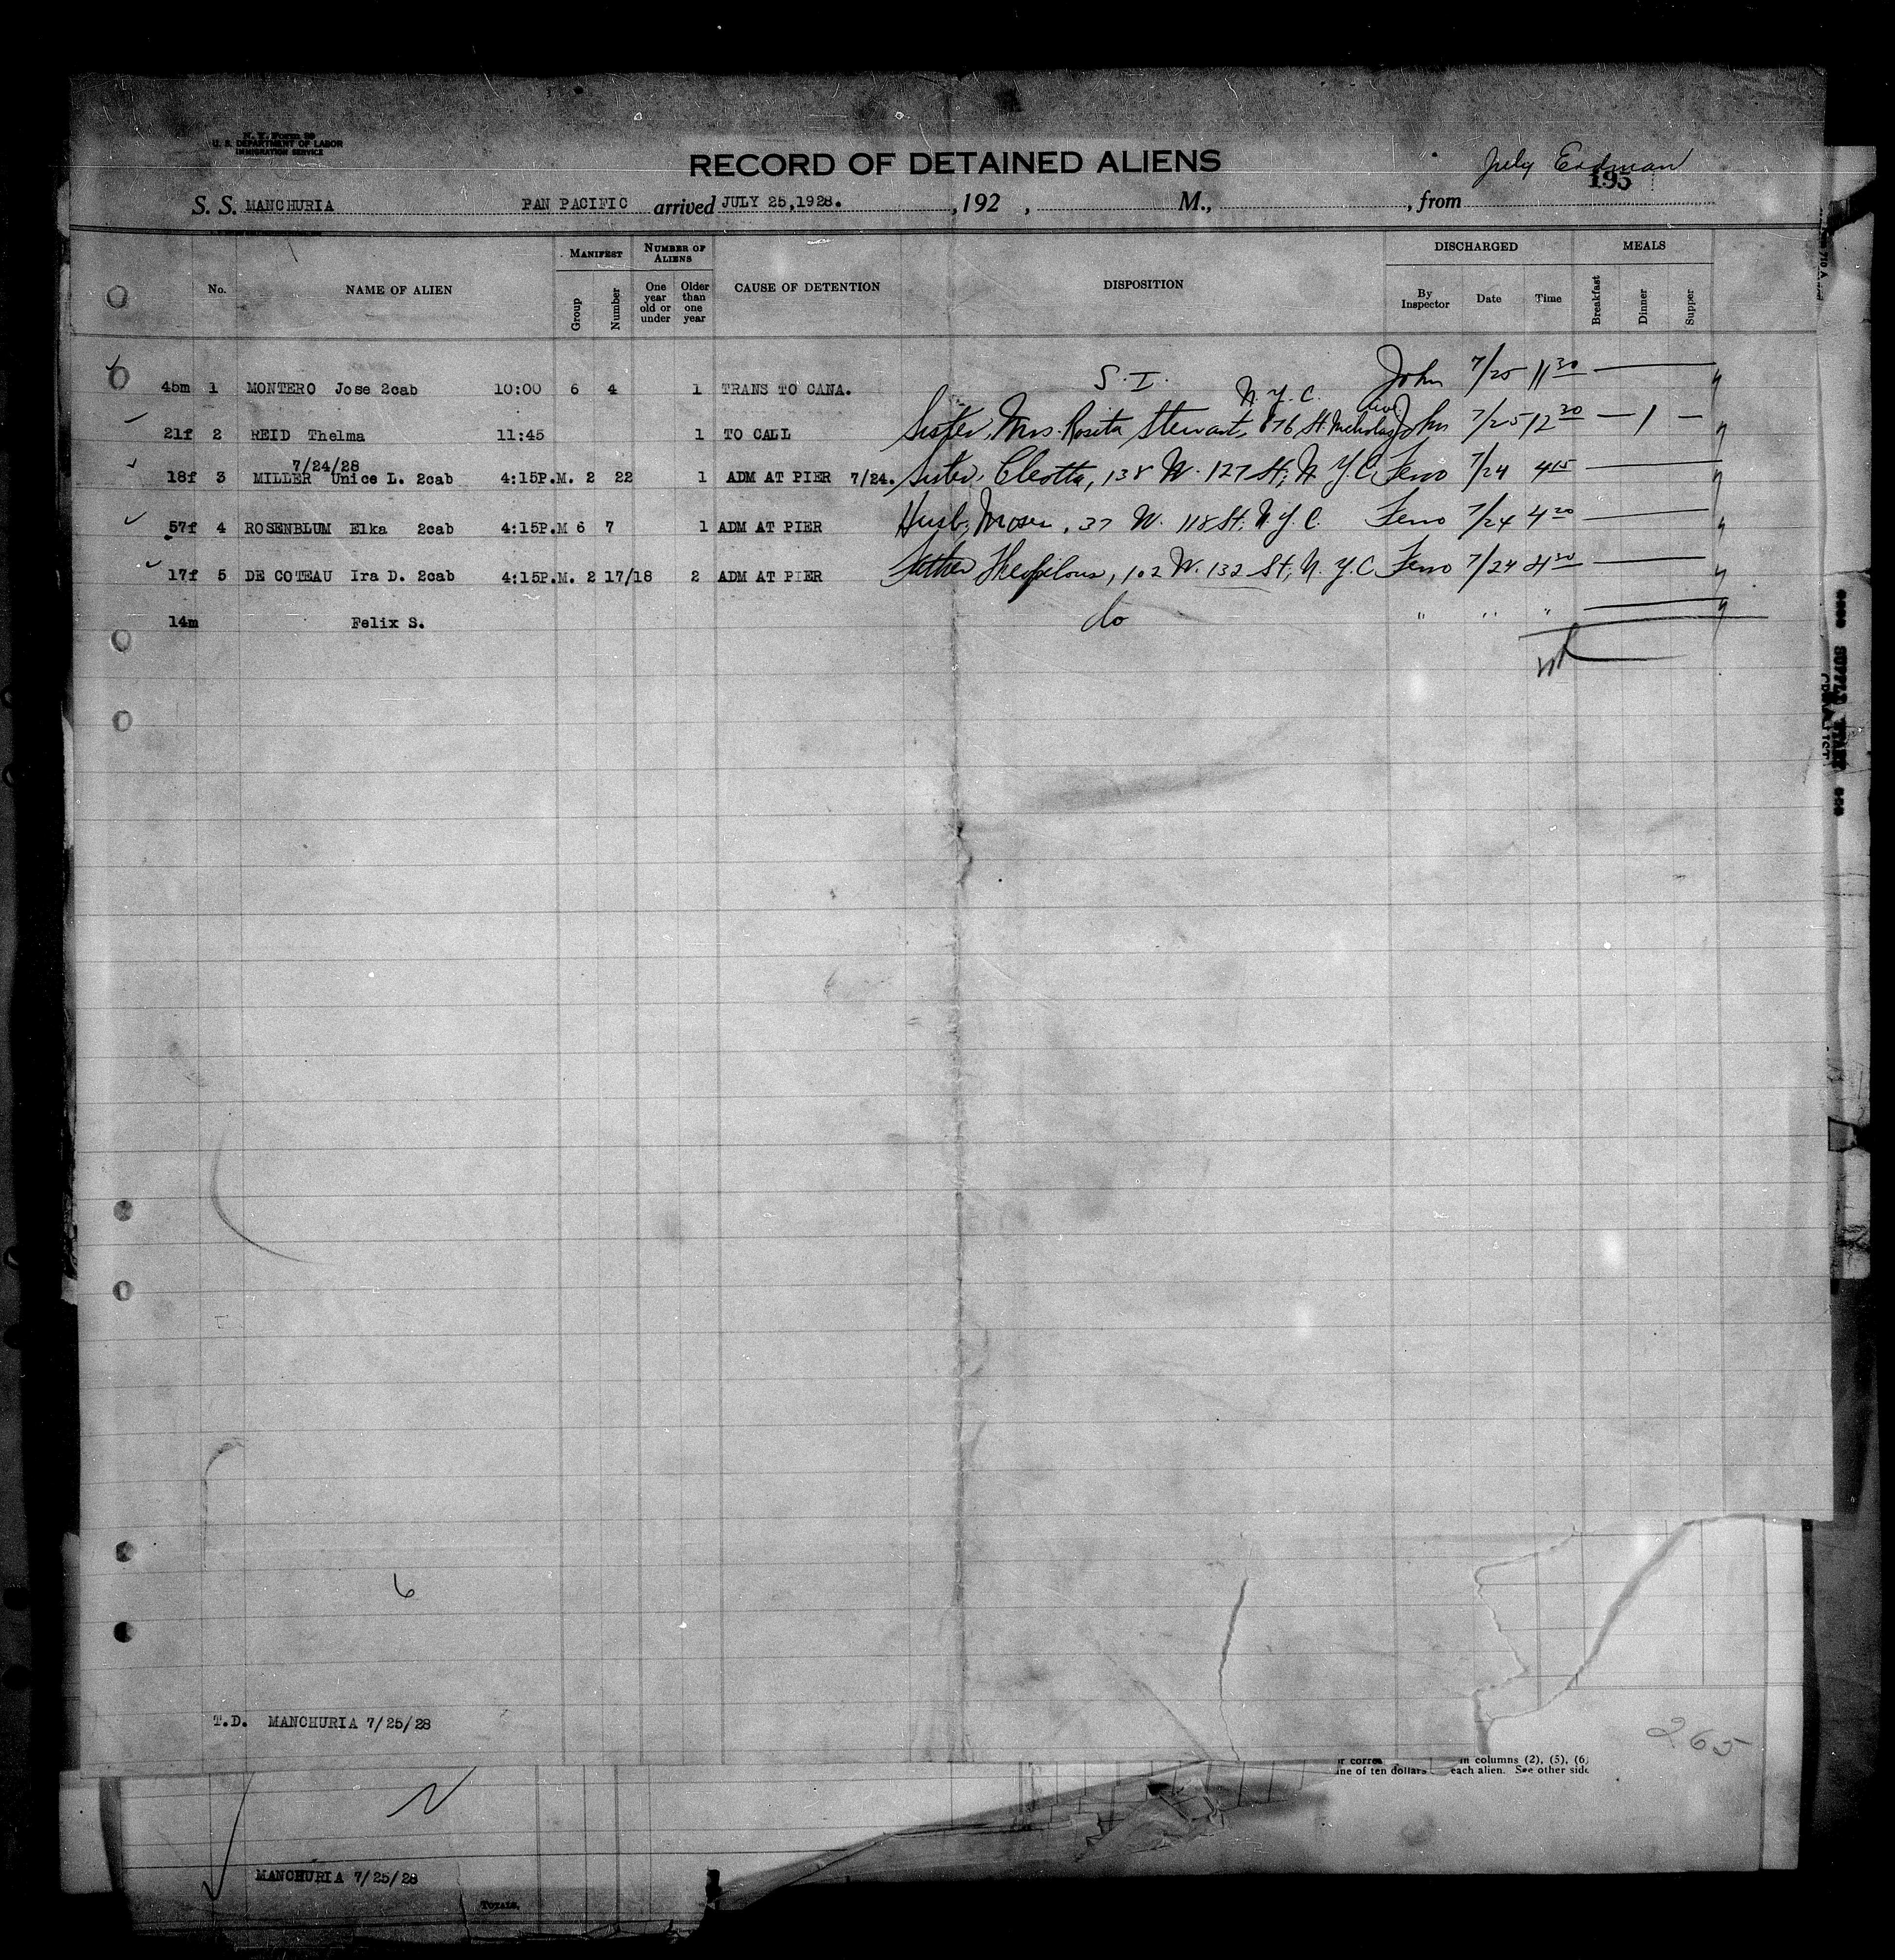 N. Y. Form 99
U. S. DEPARTMENT OF LABOR
IMMIGRATION SERVICE
RECORD OF DETAINED ALIENS
195
S. S. MANCHURIA PAN PACIFIC arrived JULY 25,1928. , 192 , M., , from
No. NAME OF ALIEN MANIFEST Group Number NUMBER OF ALIENS One year old or under Older than one year CAUSE OF DETENTION DISPOSITION DISCHARGED By Inspector Date Time MEALS Breakfast Dinner Supper
45m 1 MONTERO Jose 2cab 10:00 6 4 1 TRANS TO CANA. S. I. John 7/25 11 30
N. Y. C.
21f 2 REID Thelma 11:45 1 TO CALL Sister, Mrs. Rosita Stewart, 876 St. Nicholas Ave John 7/25 12 30 — 1 —
7/24/28
18f 3 MILLER Unice L. 2cab 4:15P.M. 2 22 1 ADM AT PIER 7/24. Sister, Cleotta, 138 W. 127 St; N. Y. C. 7/24 4 15
57f 4 ROSENBLUM Elka 2cab 4:15P.M 6 7 1 ADM AT PIER Husb; Moser, 37 W. 118 St; N. Y. C. 7/24 4 20
17f 5 DE COTEAU Ira D. 2cab 4:15P.M. 2 17/18 2 ADM AT PIER Father 102 W. 132 St; N. Y. C. 7/24 4 30
14m Felix S. do " " "
6
T.D. MANCHURIA 7/25/28
265
in columns (2), (5), (6)
ine of ten dollars each alien. See other side
MANCHURIA 7/25/28
TOTALS,